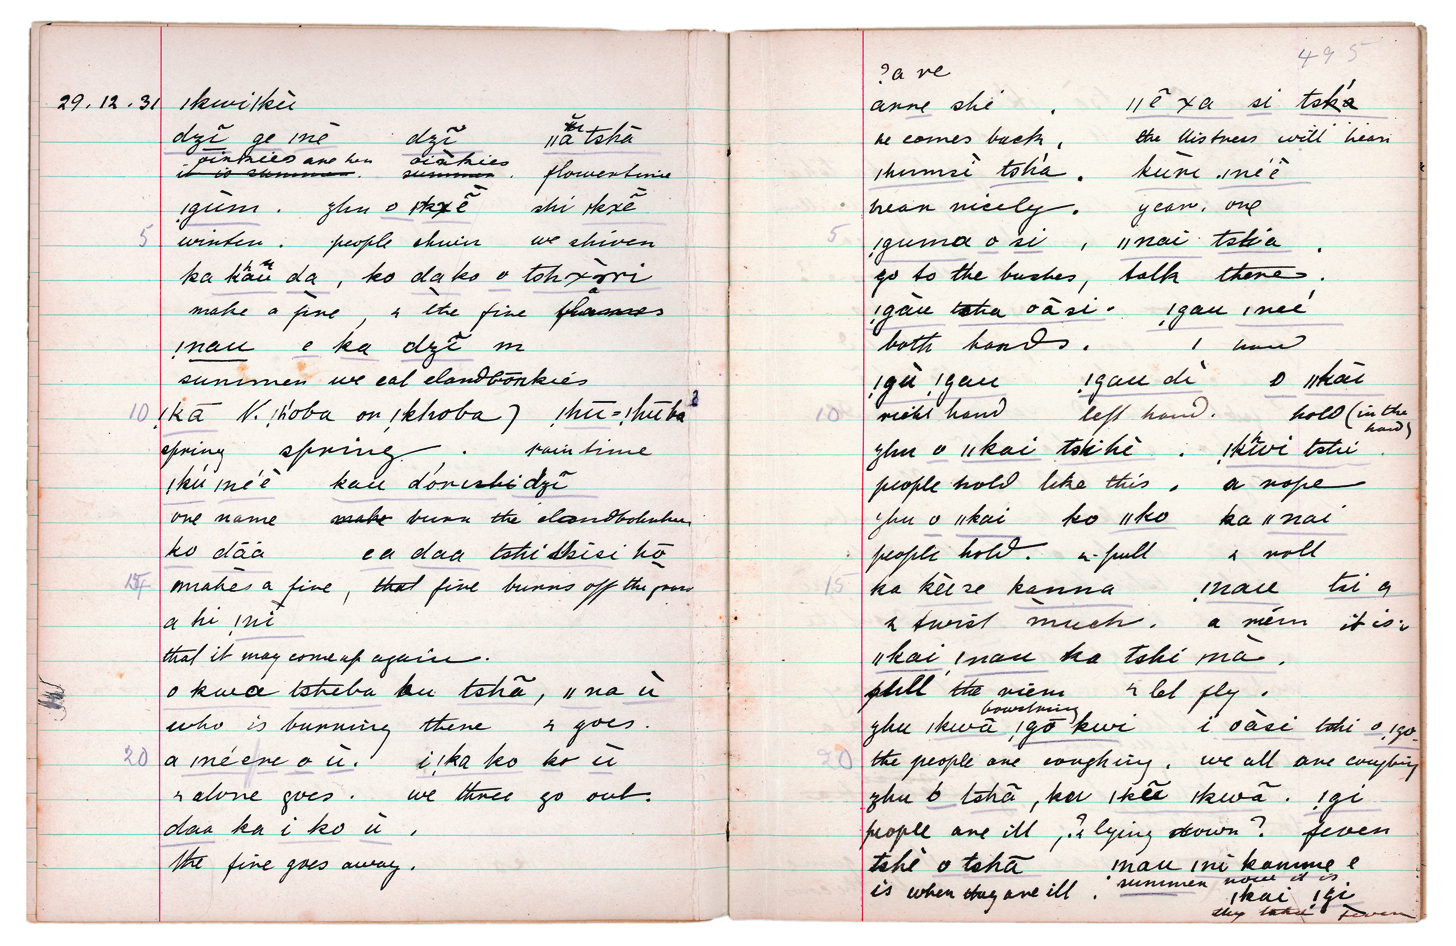 29.12.31 ǀkwiǀkè
dzĩ ge ǀnē dzĩ ǁãtshā
oinkies are her oinkies
it is summer. summer. flowertime
ǃgùm. zhu o ǀkxẽ shi ǀkxẽ
5 winter. people shiver we shiver
ka kãũ da, ko da ko o tshxòrri
make a fire, & the fire flames
ǃnau e ka dzĩ m
summer we eat elandbōnkies
10 ǃkā N. ǃhoba or ǃkhoba) ǃhū=ǃhūba
spring spring. raintime
ǀkú ǀné'è kau dórishi dzĩ
one name make burn the
ko dáá ea daa tshi sìsi hō
15 makes a fire, that fire burns off the grass
a hi ǃnì
that it may come up again.
o kwa tsheba ku tshā, ǁna ù
who is burning there & goes.
20 a ǀné'ere o ù. i ǃka ko ko ù
& alone goes. we three go out.
daa ka i ko ù.
the fire goes away.
495
ʔa re
arre shè. ǁẽ xa si tshá
he comes back, the distress will hear
ǀhumsì tshá. kùri ǀné'è
hear nicely. year. one
5 ǃguma o si, ǁnai tshia.
go to the bushes, talk there.
ǃgàu tsha oāsi. ǃgau ǀneé
both hands. 1 hand
ǃgù ǃgau ǃgau dì o ǁkāi
10 right hand left hand. hold (in the hand)
zhu o ǁkai tshihè. ǃkhwi tshi.
people hold like this. a rope
zhu o ǁkai ko ǁko ka ǁnai
people hold. & pull & roll
15 ka kèise kanna ǃnau tsi a
& twist much. a riem it is:
ǁkai ǃnau ka tshi mā.
pull the riem & let fly.
bowstring
zhu ǀkwā ǃgō kwi i oāsi tshi o ǃgo
20 the people are coughing. we all are coughing
zhu o tshā, ku ǀkẽ ǀkwā. ǃgi
people are ill, ?& lying down? fever
tshè o tshā ǃnau ǀni kamme e
is when they are ill. summer now it is
ǃkai ǃgi
they take fever